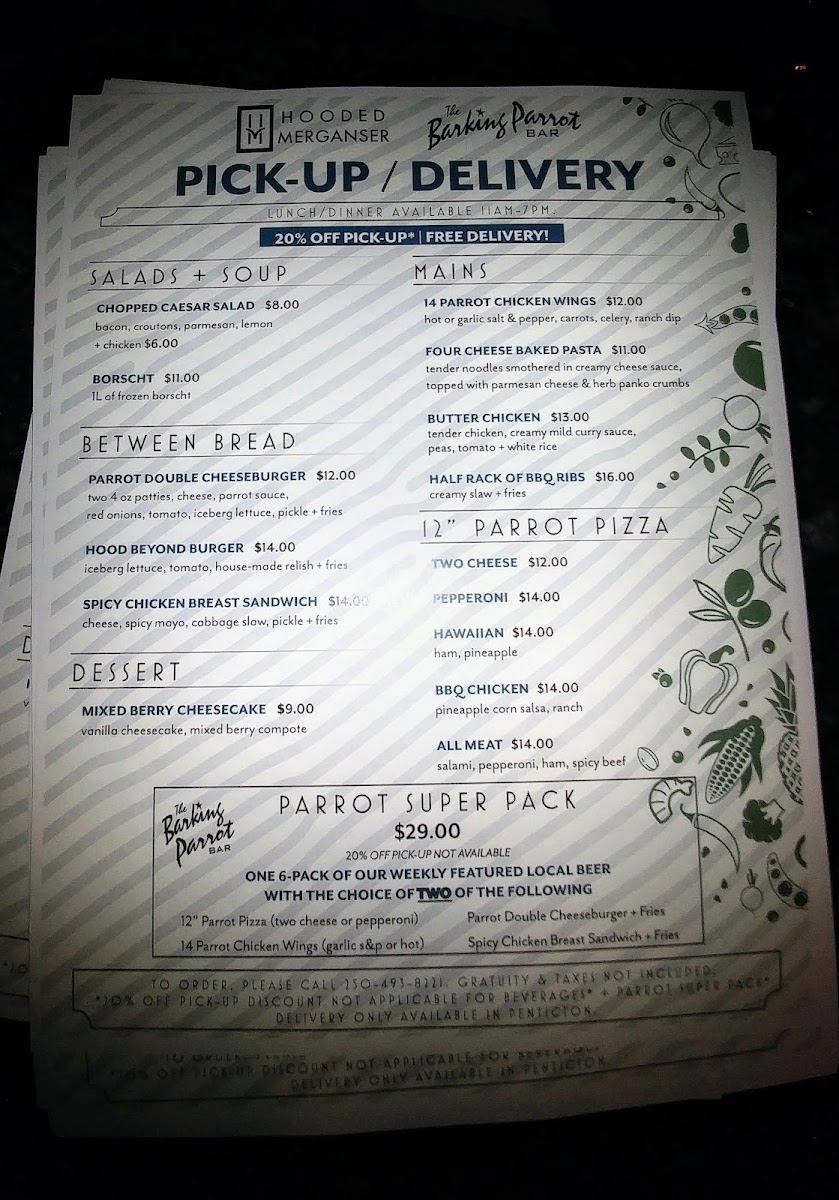 HOODED
MERGANSER
The
Barking Parrot
BAR
PICK-UP / DELIVERY
LUNCH/DINNER AVAILABLE 11AM-7PM.
20% OFF PICK-UP* | FREE DELIVERY!
SALADS + SOUP
CHOPPED CAESAR SALAD $8.00
bacon, croutons, parmesan, lemon
+ chicken $6.00
BORSCHT $11.00
1L of frozen borscht
BETWEEN BREAD
PARROT DOUBLE CHEESEBURGER $12.00
two 4 oz patties, cheese, parrot sauce,
red onions, tomato, iceberg lettuce, pickle + fries
HOOD BEYOND BURGER $14.00
iceberg lettuce, tomato, house-made relish + fries
SPICY CHICKEN BREAST SANDWICH $14.00
cheese, spicy mayo, cabbage slaw, pickle + fries
DESSERT
MIXED BERRY CHEESECAKE $9.00
vanilla cheesecake, mixed berry compote
MAINS
14 PARROT CHICKEN WINGS $12.00
hot or garlic salt & pepper, carrots, celery, ranch dip
FOUR CHEESE BAKED PASTA $11.00
tender noodles smothered in creamy cheese sauce,
topped with parmesan cheese & herb panko crumbs
BUTTER CHICKEN $13.00
tender chicken, creamy mild curry sauce,
peas, tomato + white rice
HALF RACK OF BBQ RIBS $16.00
creamy slaw + fries
12" PARROT PIZZA
TWO CHEESE $12.00
PEPPERONI $14.00
HAWAIIAN $14.00
ham, pineapple
BBQ CHICKEN $14.00
pineapple corn salsa, ranch
ALL MEAT $14.00
salami, pepperoni, ham, spicy beef
The
Barking
Parrot
BAR
PARROT SUPER PACK
$29.00
20% OFF PICK-UP NOT AVAILABLE
ONE 6-PACK OF OUR WEEKLY FEATURED LOCAL BEER
WITH THE CHOICE OF TWO OF THE FOLLOWING
12" Parrot Pizza (two cheese or pepperoni)
14 Parrot Chicken Wings (garlic s&p or hot)
Parrot Double Cheeseburger + Fries
Spicy Chicken Breast Sandwich + Fries
TO ORDER, PLEASE CALL 250-493-8221. GRATUITY & TAXES NOT INCLUDED.
*20% OFF PICK-UP DISCOUNT NOT APPLICABLE FOR BEVERAGES* + PARROT SUPER PACK*
DELIVERY ONLY AVAILABLE IN PENTICTON.
TO ORDER,
*20% OFF PICK-UP DISCOUNT NOT APPLICABLE FOR
DELIVERY ONLY AVAILABLE IN PENTICTON